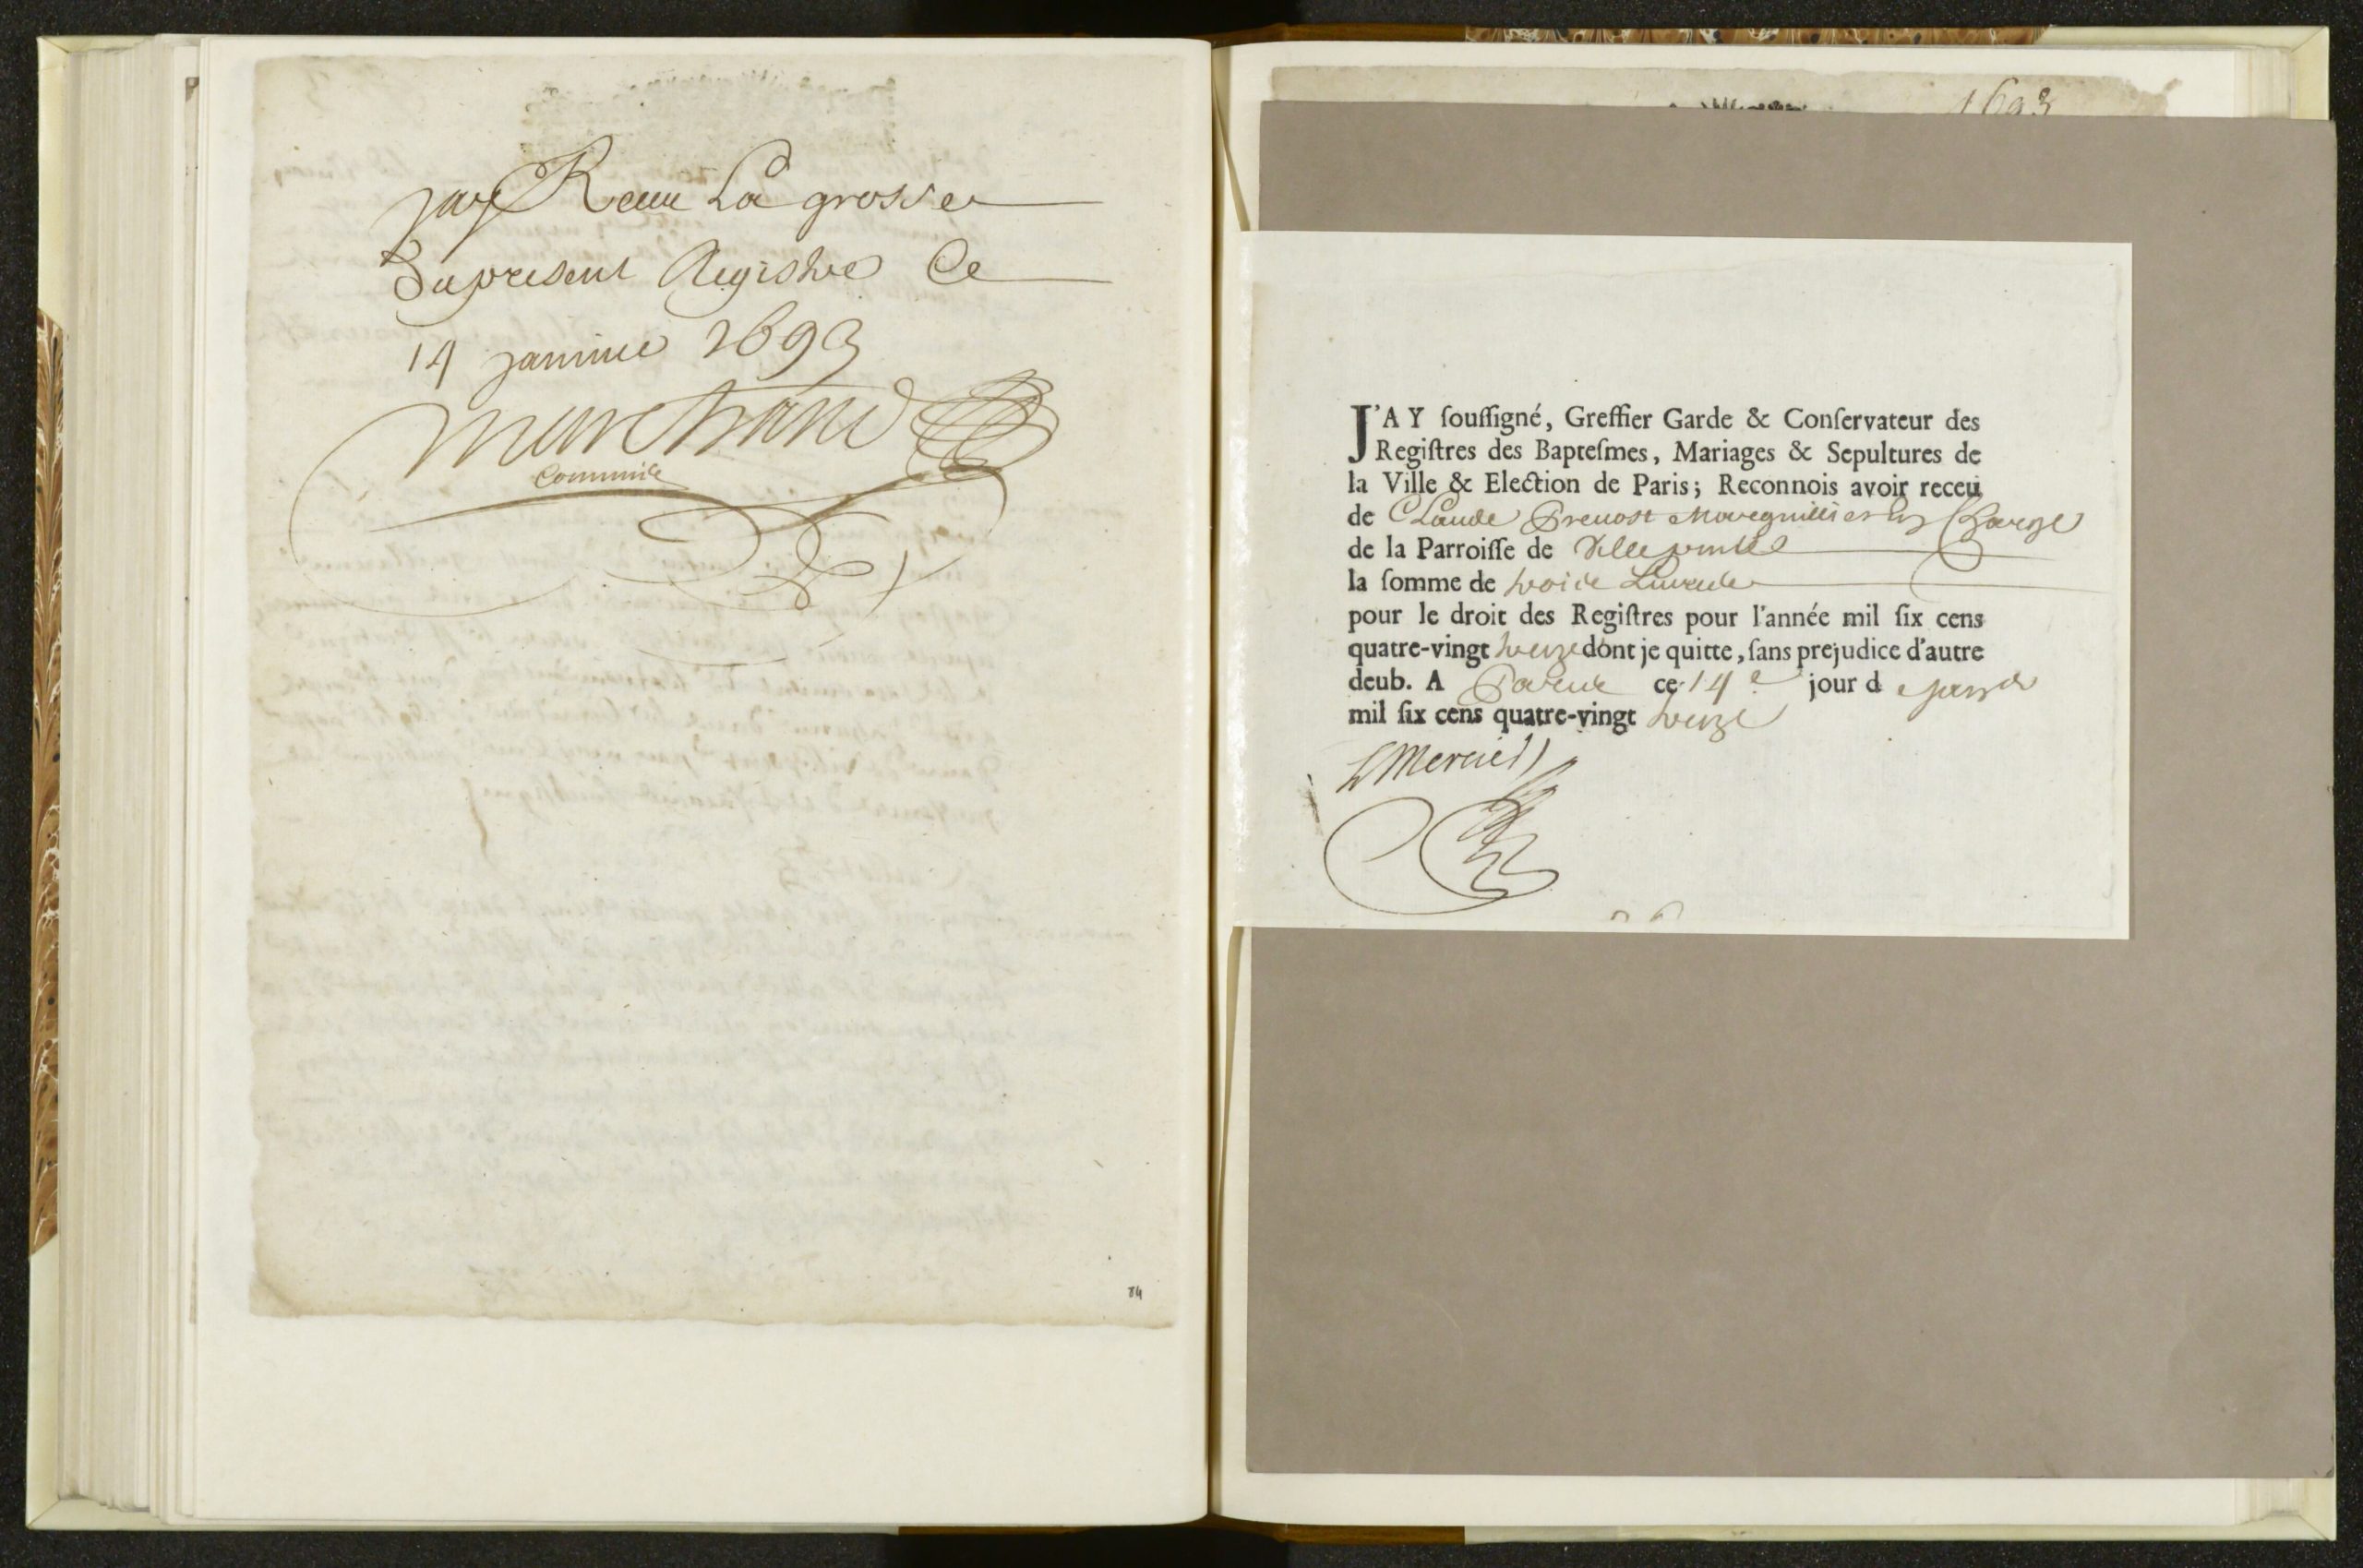 jay Receu La grosse
Du present Registre Ce
14 janvier 1693
Marchand
Commis
84
1693
J'AY ſouſſigné, Greffier Garde & Conſervateur des
Regiſtres des Bapteſmes, Mariages & Sepultures de
la Ville & Election de Paris; Reconnois avoir receu
de CLaude Prevost Marguillier en Charge
de la Parroiſſe de Villepinte
la ſomme de trois Livres
pour le droit des Regiſtres pour l'année mil ſix cens
quatre-vingt treize dont je quitte, ſans prejudice d'autre
deub. A Paris ce 14e jour de janvier
mil ſix cens quatre-vingt treize
LeMercier